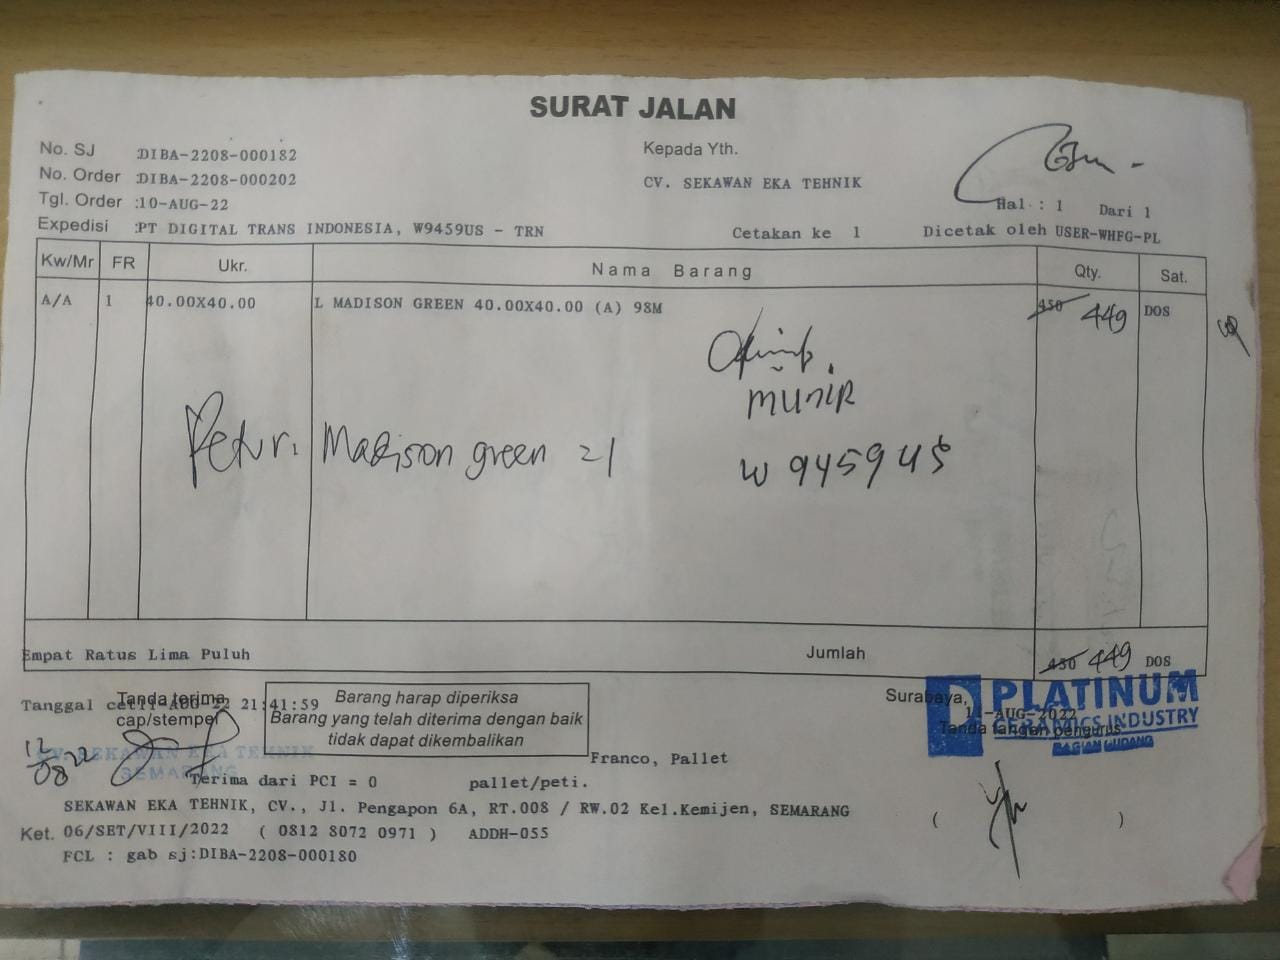 SURAT JALAN
No. SJ :DIBA-2208-000182
Kepada Yth.
No. Order :DIBA-2208-000202
CV. SEKAWAN EKA TEHNIK
Tgl. Order :10-AUG-22
Hal : 1 Dari 1
Expedisi :PT DIGITAL TRANS INDONESIA, W9459US - TRN
Cetakan ke 1
Dicetak oleh USER-WHFG-PL
Kw/Mr FR Ukr. Nama Barang Qty. Sat.
A/A 1 40.00X40.00 L MADISON GREEN 40.00X40.00 (A) 98M 450 449 DOS
MUNIR
Retur. Madison green 21
W 9459 US
Empat Ratus Lima Puluh Jumlah 450 449 DOS
Tanggal cet11-AUG-22 21:41:59
Tanda terima
cap/stempel
Barang harap diperiksa
Barang yang telah diterima dengan baik
tidak dapat dikembalikan
Surabaya,
11-AUG-2022
Tanda tangan pengurus
PLATINUM
CERAMICS INDUSTRY
BAGIAN GUDANG
12/08 22
CV. SEKAWAN EKA TEHNIK
SEMARANG
Franco, Pallet
Terima dari PCI = 0 pallet/peti.
SEKAWAN EKA TEHNIK, CV., Jl. Pengapon 6A, RT.008 / RW.02 Kel.Kemijen, SEMARANG
Ket. 06/SET/VIII/2022 ( 0812 8072 0971 ) ADDH-055
( )
FCL : gab sj:DIBA-2208-000180